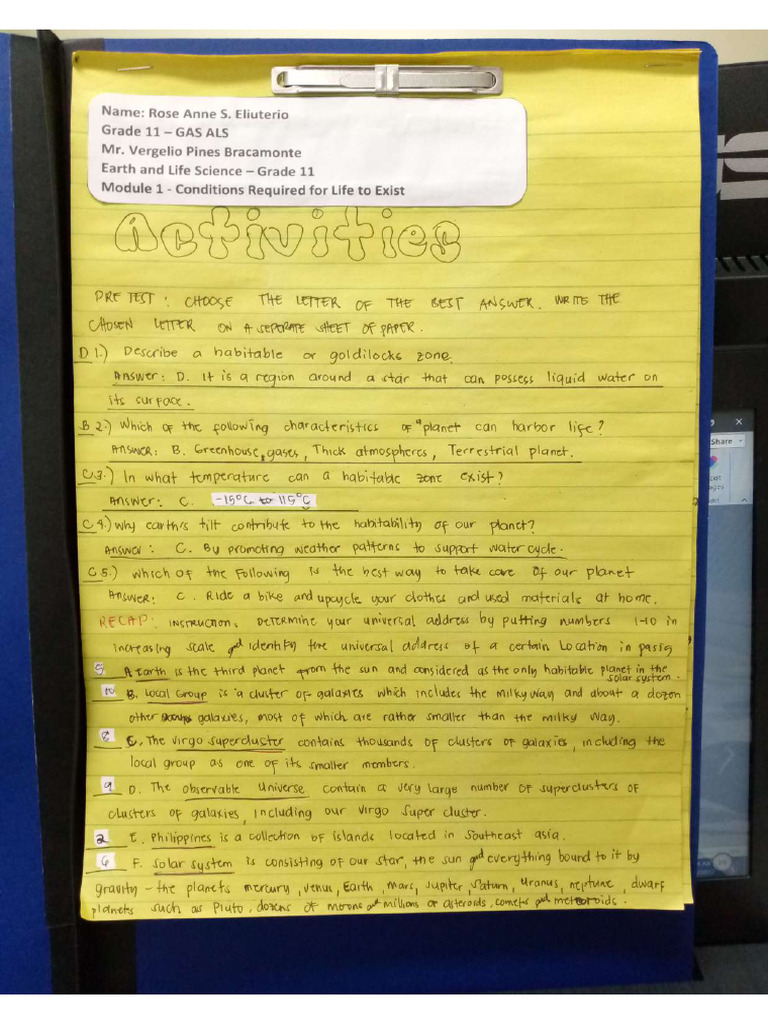 Name: Rose Anne S. Eliuterio
Grade 11 – GAS ALS
Mr. Vergelio Pines Bracamonte
Earth and Life Science – Grade 11
Module 1 - Conditions Required for Life to Exist
Activities
PRE TEST: CHOOSE THE LETTER OF THE BEST ANSWER. WRITE THE
CHOSEN LETTER ON A SEPERATE SHEET OF PAPER.
D 1.) Describe a habitable or goldilocks zone.
Answer: D. It is a region around a star that can possess liquid water on
its surface.
B 2.) Which of the following characteristics of a planet can harbor life?
Answer: B. Greenhouse, gases, Thick atmospheres, Terrestrial planet.
C 3.) In what temperature can a habitable zone exist?
Answer: C. -15°C to 115°C
C 4.) Why earth's tilt contribute to the habitability of our planet?
Answer: C. By promoting weather patterns to support water cycle.
C 5.) Which of the following is the best way to take care of our planet
Answer: C. Ride a bike and upcycle your clothes and used materials at home.
RECAP: INSTRUCTION: Determine your universal address by putting numbers 1-10 in
increasing scale and identify the universal address of a certain location in pasig
5 A Earth is the third planet from the sun and considered as the only habitable planet in the
solar system.
10 B. Local Group is a cluster of galaxies which includes the milky way and about a dozen
other galaxies, most of which are rather smaller than the milky way.
8 C. The Virgo supercluster contains thousands of clusters of galaxies, including the
local group as one of its smaller members.
9 D. The observable Universe contain a very large number of superclusters of
clusters of galaxies, including our Virgo Super cluster.
2 E. Philippines is a collection of islands located in Southeast asia.
6 F. Solar system is consisting of our star, the sun and everything bound to it by
gravity – the planets mercury, venus, Earth, mars, Jupiter, Saturn, uranus, neptune, dwarf
planets such as Pluto, dozens of moons and millions of asteroids, comets and meteoroids.
Share